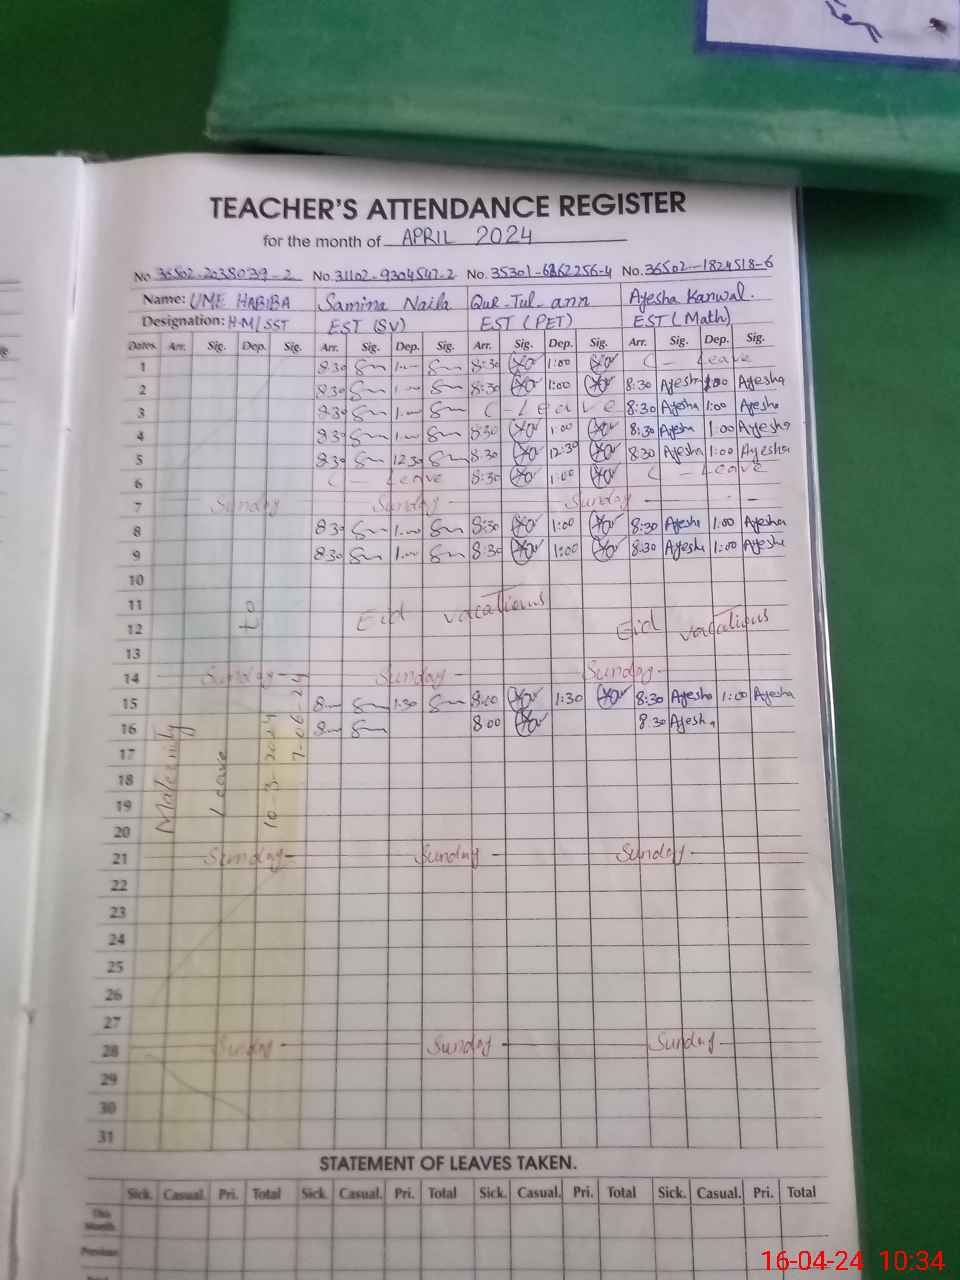 TEACHER'S ATTENDANCE REGISTER
for the month of APRIL 2024
No 36502-2038039-2 No. 31102-9304547-2 No. 35301-6862256-4 No. 36502-1824518-6
Name: UME HABIBA Samina Naila Qur-Tul-ann Ayesha Kanwal.
Designation: H-M/SST EST (SV) EST (PET) EST (Math)
Dates. Arr. Sig. Dep. Sig. Arr. Sig. Dep. Sig. Arr. Sig. Dep. Sig. Arr. Sig. Dep. Sig.
1 8:30 1:00 8:30 1:00 Leave
2 8:30 1:00 8:30 1:00 8:30 Ayesha 1:00 Ayesha
3 8:30 1:00 Leave 8:30 Ayesha 1:00 Ayesha
4 8:30 1:00 8:30 1:00 8:30 Ayesha 1:00 Ayesha
5 8:30 12:30 8:30 12:30 8:30 Ayesha 1:00 Ayesha
6 Leave 8:30 1:00 Leave
7 Sunday Sunday Sunday
8 8:30 1:00 8:30 1:00 8:30 Ayesha 1:00 Ayesha
9 8:30 1:00 8:30 1:00 8:30 Ayesha 1:00 Ayesha
10
11 Eid vacations
12 Eid vacations
13
14 Sunday Sunday Sunday
15 8:00 1:30 8:00 1:30 8:30 Ayesha 1:00 Ayesha
16 8:00 8:00 8:30 Ayesha
17
18
19
20
Maternity
Leave
10-3-2024
to
7-06-24
21 Sunday Sunday Sunday
22
23
24
25
26
27
28 Sunday Sunday Sunday
29
30
31
STATEMENT OF LEAVES TAKEN.
Sick. Casual. Pri. Total Sick. Casual. Pri. Total Sick. Casual. Pri. Total Sick. Casual. Pri. Total
This Month.
Previous
16-04-24 10:34